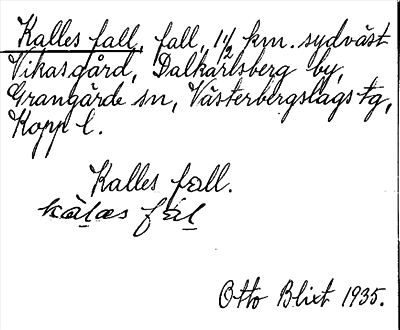 Kalles fall, fall, 1 1/2 km. sydväst
Vikasgård, Dalkarlsberg by,
Grangärde sn, Västerbergslags tg,
Kopp l.
Kalles fall.
kàlæs fál
Otto Blixt 1935.